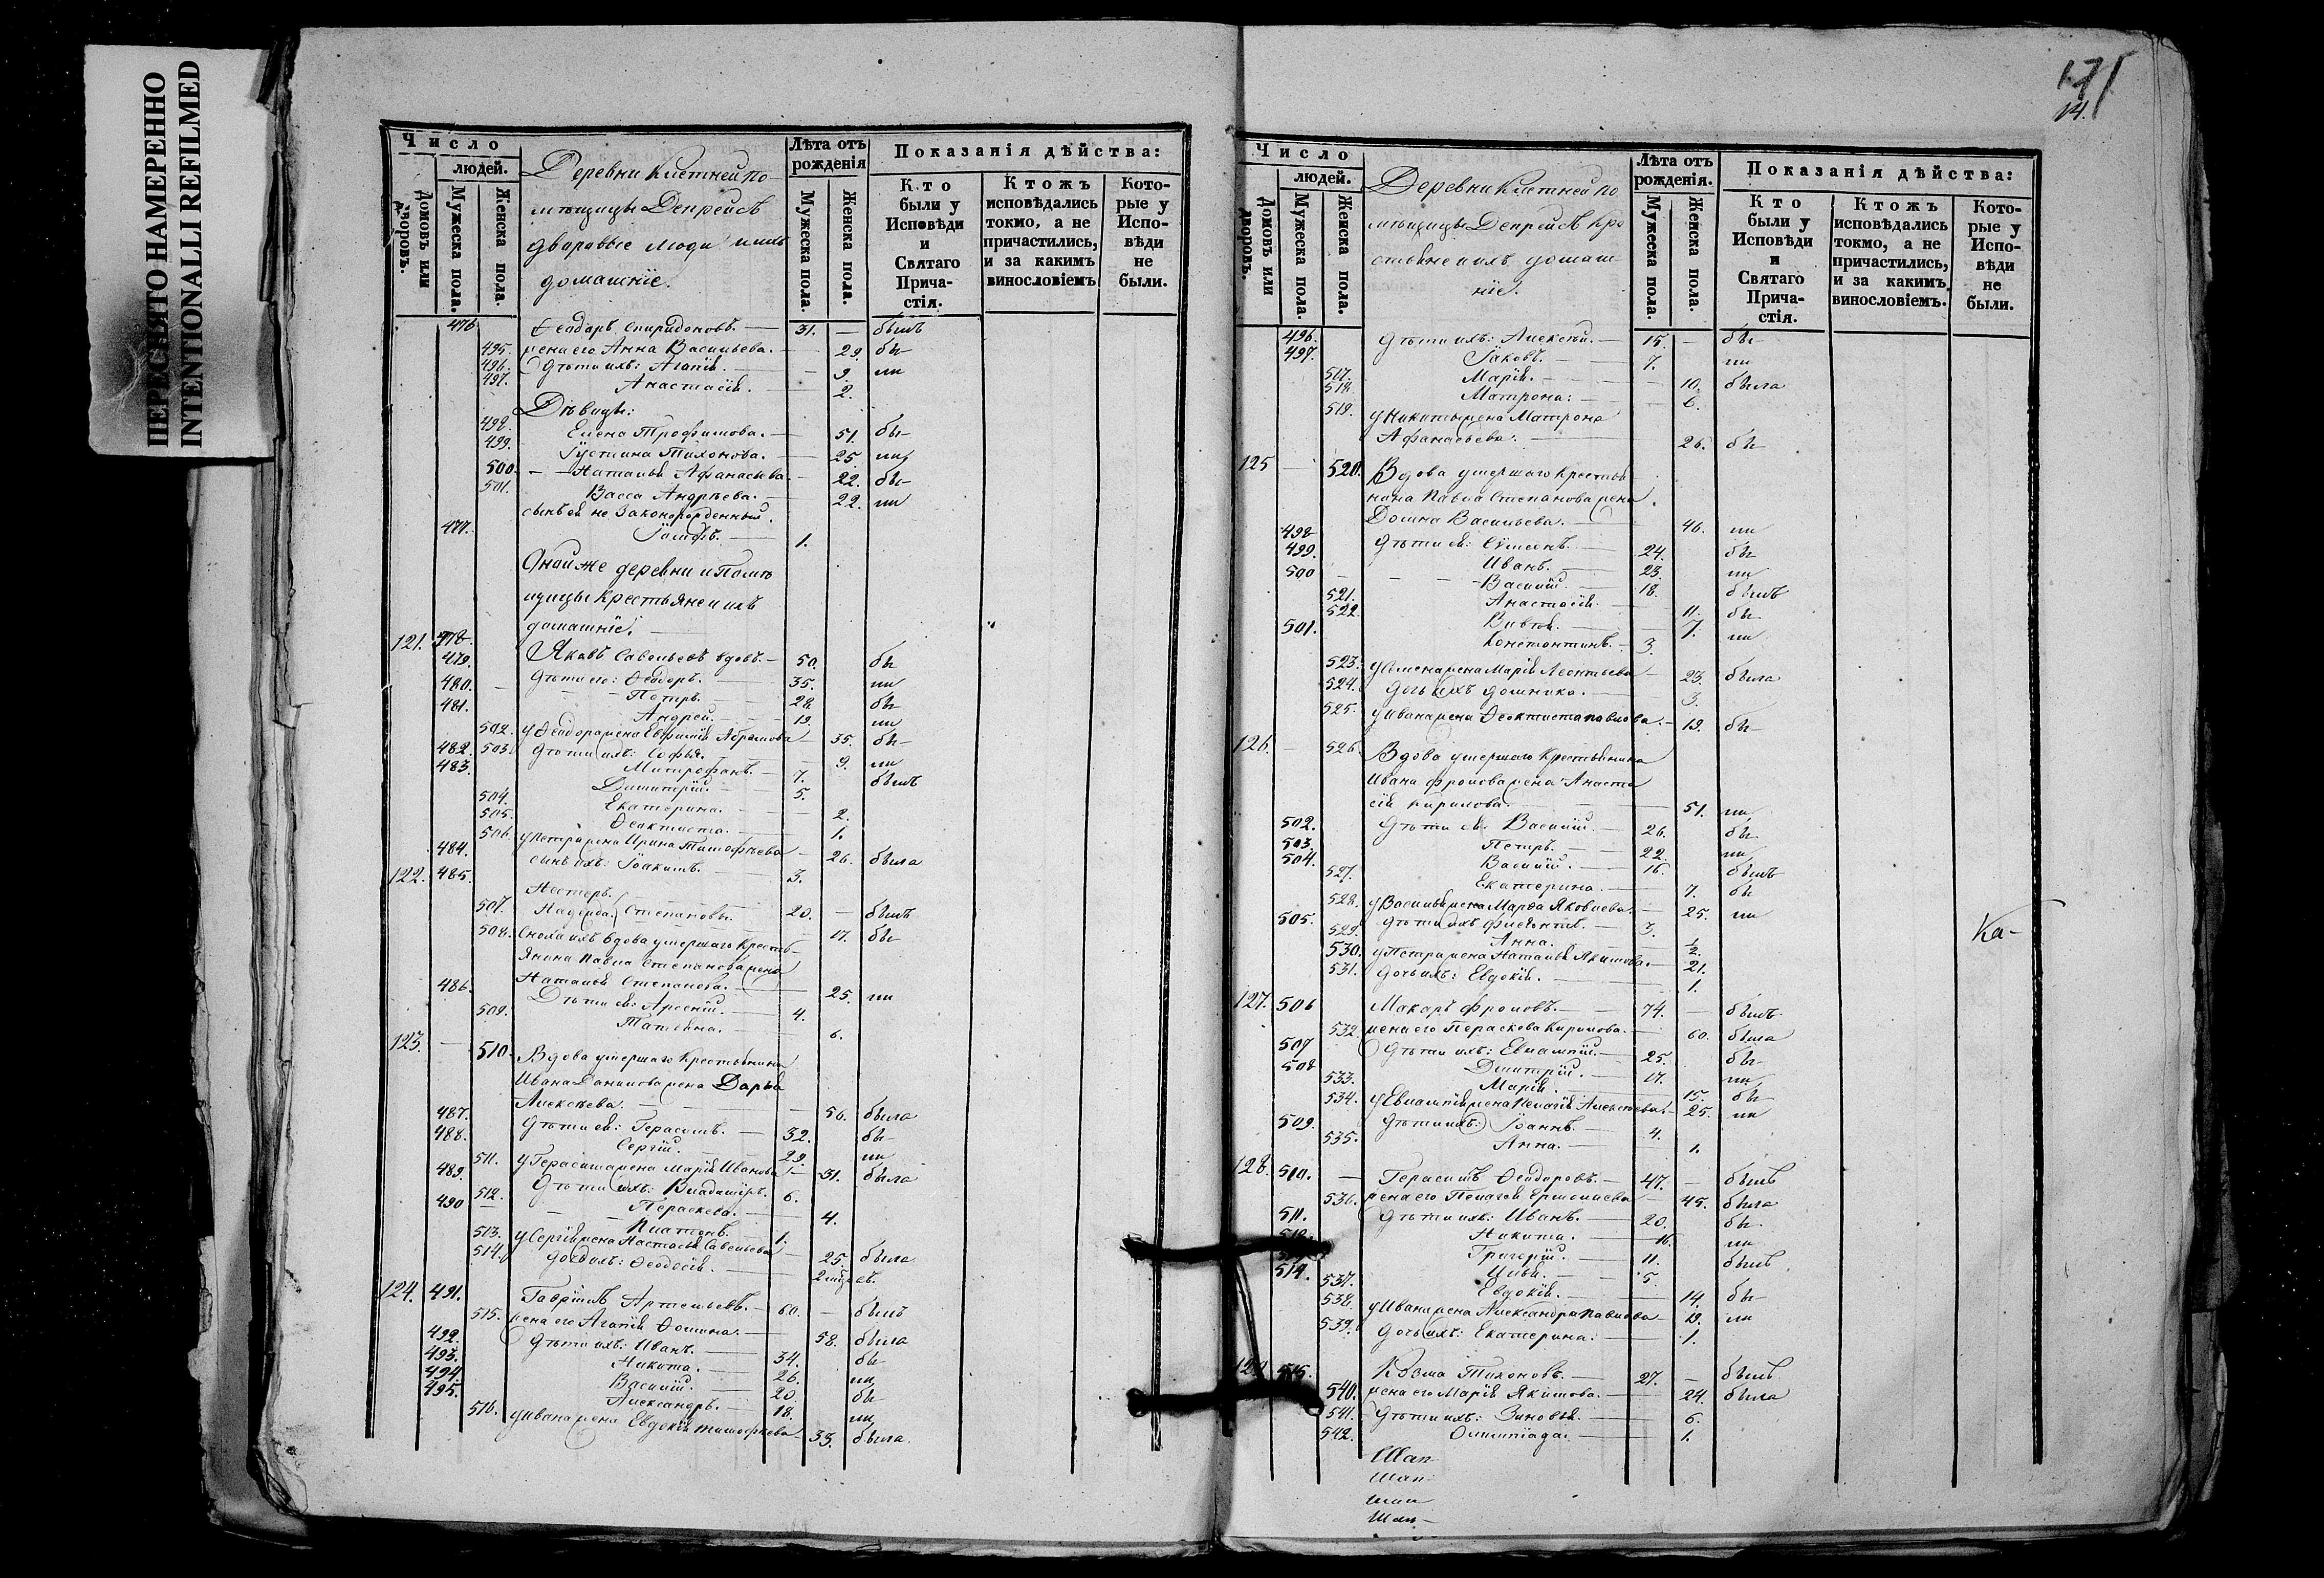 ПЕРЕСНЯТО НАМЕРЕННО
INTENTIONALLI REFILMED
Число
людей.
Домовъ или дворовъ.
Мужеска пола.
Женска пола.
Деревни Кистней по-
мѣщицы Депрейсъ
дворовые люди и ихъ
домашніе.
Лѣта отъ рожденія
Мужеска пола.
Женска пола.
Показанія дѣйства:
Кто были у Исповѣди и Святаго Причастія.
Ктожъ исповѣдались токмо, а не причастились, и за какимъ винословіемъ
Которые у Исповѣди не были.
476 Ѳеодоръ Спиридоновъ. — 31. — былъ
495. жена его Анна Васильева. — 29. бы-
496. Дѣти ихъ: Агапія. — 9. ли
497. Анастасія. — 2.
Дѣвицы:
498. Елена Трофимова. — 51. бы-
499. Іустина Тихонова. — 25. ли
500. Наталья Афанасьева. — 22. бы-
501. Васса Андрѣева. — 22. ли
сынъ ей не законорожденный.
477. Іосифъ. — 1.
Оной же деревни и помѣ
щицы крестьяне и ихъ
домашніе.
121. 478. Яковъ Савельевъ вдовъ. — 50. бы
479. дѣти его: Ѳеодоръ. — 35. ли
480. Петръ. — 28. бы-
481. Андрей. — 19. ли
502. у Ѳеодора жена Евфимія Абрамова — 35. бы-
482. 503. дѣти ихъ: Софья. — 9. ли
483. Митрофанъ. — 7. былъ
Димитрій. — 5.
504. Екатерина. — 2.
505. Ѳеоктиста. — 1.
506. у Петра жена Ирина Тимофѣева — 26. была
484. сынъ ихъ: Іоакимъ. — 3.
122. 485. Нестеръ.
507. Надежда. Степановы. — 20. — былъ
17. бы
508. Сноха ихъ вдова умершаго крестья-
янина Павла Степанова жена
Наталья Степанова. — 25. ли
486. Дѣти ей: Арсеній. — 4.
509. Татьяна. — 6.
123. — 510. Вдова умершаго крестьянина
Ивана Данилова жена Дарья
Алексѣева. — 50. была
487. дѣти ей: Герасимъ. — 32. бы-
488. Сергій. — 29. ли
511. у Герасима жена Марія Иванова — 31. была
489. Дѣти ихъ: Владимиръ. 6.
490 512. Пераскева. — 4.
Платонъ. 1.
513. у Сергія жена Настасья Савельева — 25. была
514. дочь ихъ: Ѳеодосія. —
124. 491. Гавріилъ Артемьевъ. — 60. — былъ
515. жена его Агапія Ѳомина. — 58. была
492. Дѣти ихъ: Иванъ. — 34. бы
493. Никита. — 26. ли
494. Василій. — 20. бы
495. Александръ. — 18. ли
516. у Ивана жена Евдокія Тимофѣева — 33. была
171
14.
Число
людей.
Домовъ или дворовъ.
Мужеска пола.
Женска пола.
Деревни Кистней по
мѣщицы Депрейсъ кре
стьяне и ихъ домаш
ніе.
Лѣта отъ рожденія.
Мужеска пола.
Женска пола.
Показанія дѣйства:
Кто были у Исповѣди и Святаго Причастія.
Ктожъ исповѣдались токмо, а не причастились, и за какимъ винословіемъ.
Которые у Исповѣди не были.
496. Дѣти ихъ: Алексѣй. — 15. — бы
497. Іаковъ. — 7. ли
517. Марія. — 10. была
518. Матрона: — 6.
519. у Никиты жена Матрона
Афанасьева: — 26. бы
125 — 520. Вдова умершаго крестья
нина Павла Степанова жена
Домна Васильева. — 46. ли
498 дѣти ей: Сѵмеонъ. — 24. бы
499. Иванъ. — 23. ли
500 Василій. — 18. былъ
521. Анастасія. — 11. бы
522. 7. ли
501. Константинъ. — 3.
523. у Симена жена Марія Леонтьева — 23. была
524. дочь ихъ Домника. — 3.
525. у Ивана жена Ѳеоктиста Павлова. — 19. бы-
126. — 526. Вдова умершаго крестьянина
Ивана Фролова жена Анаста
сія Кирилова. — 51. ли
502. Дѣти ей: Василій. — 26. бы
503. Петръ. — 22. ли
504. Василій. — 16. былъ
527. Екатерина. — 7. бы
528. у Василья жена Марѳа Яковлева. — 25. ли
505. дѣти ихъ — 3.
529. Анна. — ½.
530. у Петра жена Наталья Якимова. — 21.
531. дочь ихъ: Евдокія. — 1.
Ка-
127. 506 Макаръ Фроловъ. — 74. — былъ
532. жена его Пераскева Кирилова. — 60. была
507 Дѣти ихъ: Евлампій. — 25. бы-
508 Дмитрій. — 17. ли
533. Марія. — 15. бы
534. у Евлампія жена Пелагія Алексѣева. — 25. ли
509. Дѣти ихъ: Іоаннъ. — 4.
535. Анна. — 1.
128. 510. — Герасимъ Ѳеодоровъ. — 47. — былъ
536. жена его Пелагея Ермолаева — 45. была
511. Дѣти ихъ: Иванъ. — 20. бы
512. Никита. — 16. ли
Григорій. — 11. былъ
514. Илья. — 5.
537. Евдокія. — 14. бы
538. у Ивана жена Александра Павлова — 19. ли
539. дочь ихъ: Екатерина. — 1.
129 515. Козма Тихоновъ. — 27. — былъ
540. жена его Марія Якимова. — 24. была
541. Дѣти ихъ: Зиновья. — 6.
542. Олимпіада. — 1.
Шап
Шап
Шап
Шап-